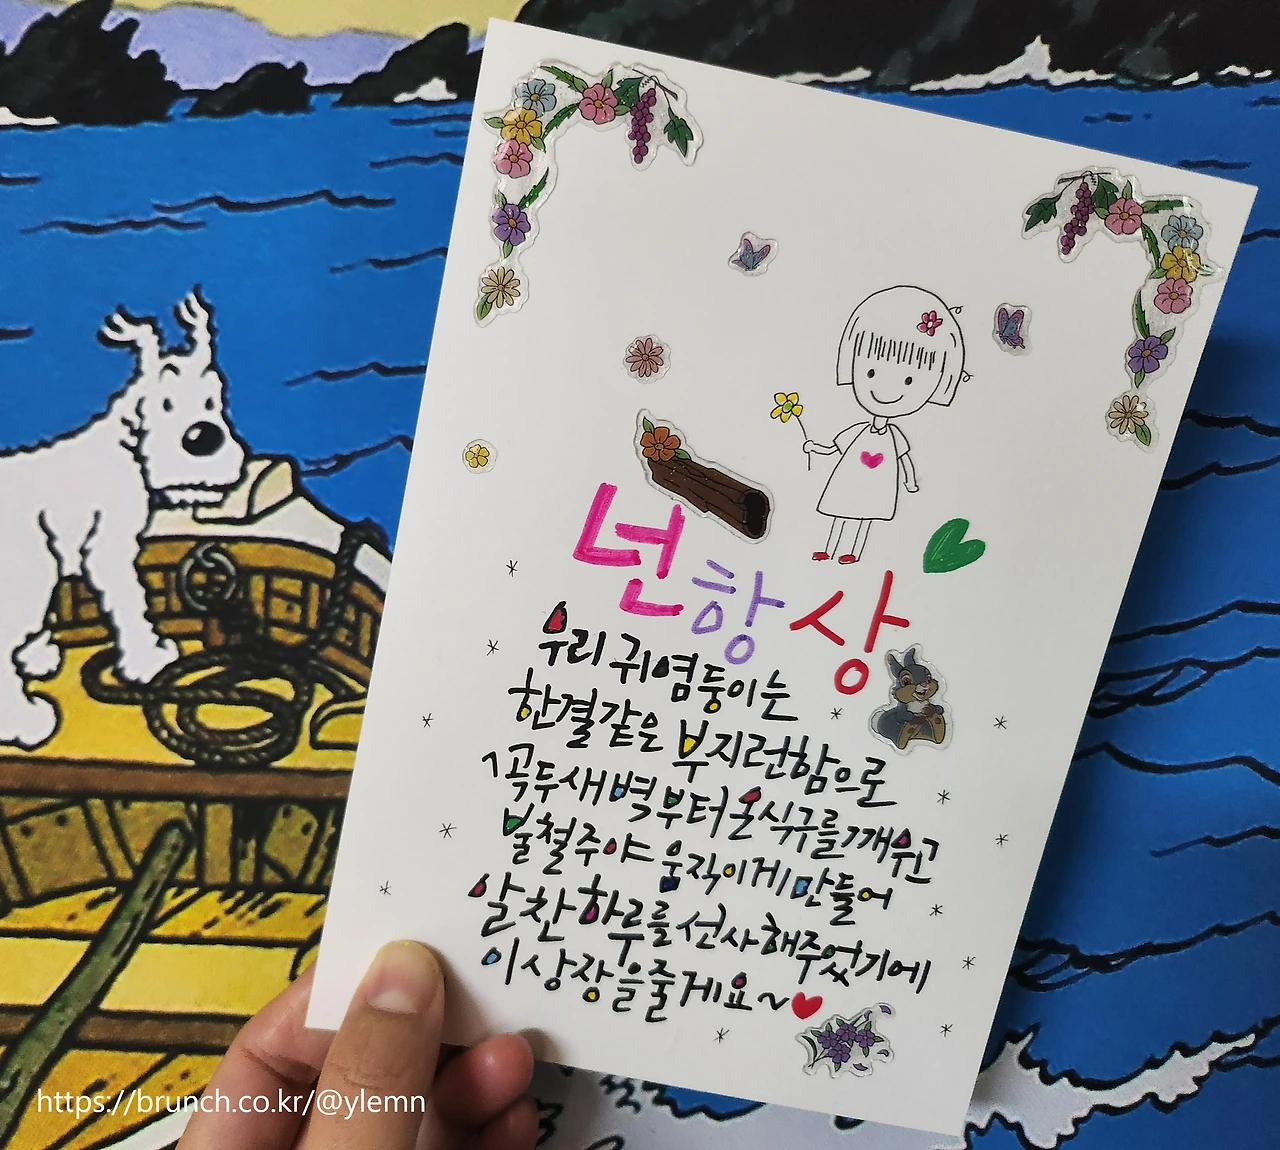 넌항상
우리 귀염둥이는
한결같은 부지런함으로
꼭두새벽부터 온식구를 깨우고
불철주야 움직이게 만들어
알찬 하루를 선사해주었기에
이 상장을 줄게요~
https://brunch.co.kr/@ylemn